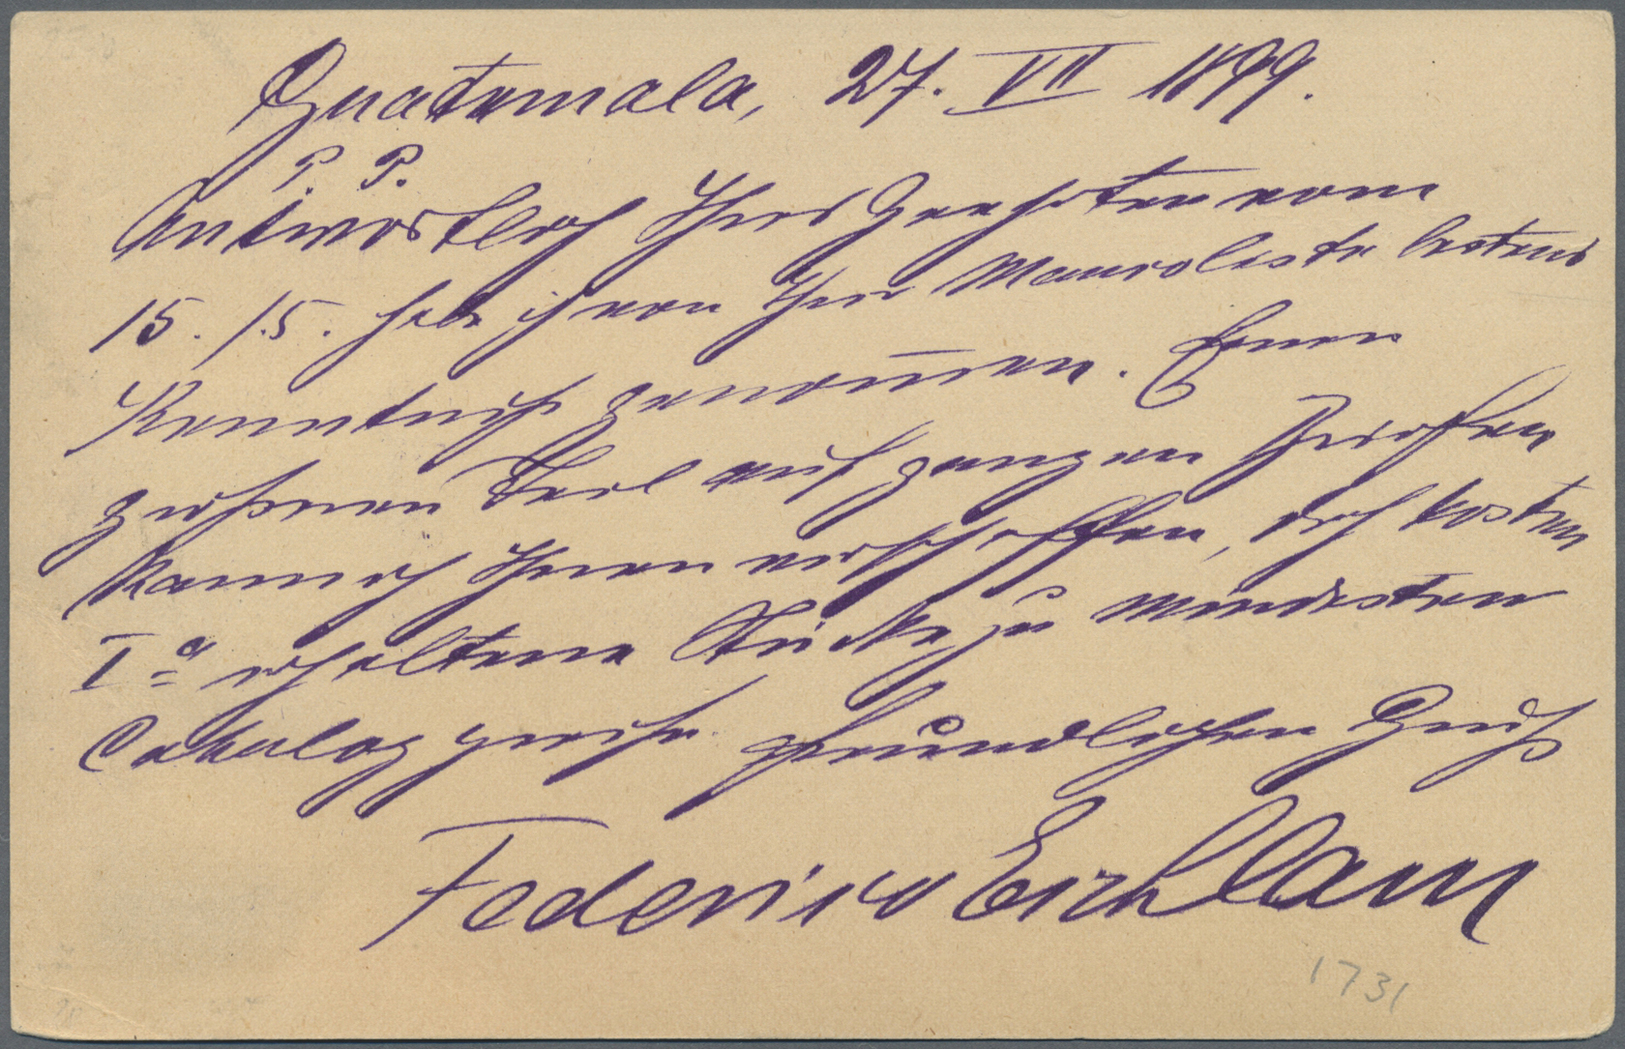 Guatemala, 27. VII 1899.
P. P.
Antwortlich Ihres Geehrten vom
15./5. habe ich von Ihrer Mancoliste bestens
Kenntniß genom̅en. Einen
größeren Teil auf ganzen Briefen
kann ich Ihnen verschaffen, doch kosten
Iª erhaltene Stücke zu mindesten
Catalogpreise. Freundlichen Gruß
Federico Eichlam
1731